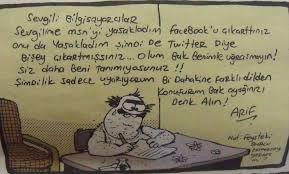 Sevgili Bilgisayarcılar
Sevgilime msn'yi yasakladım faceBook'u çıkarttınız
onu da Yasakladım şimdi De Twitter Diye
Bişey çıkartmışsınız... olum Bak Benimle uğraşmayın!
siz daha Beni tanımıyosunuz !!
Şimdilik sadece uyarıyorum Bi Dahakine farklı dilden
Konuşurum Bak ayağınızı
Denk Alın!
ARİF
Not: